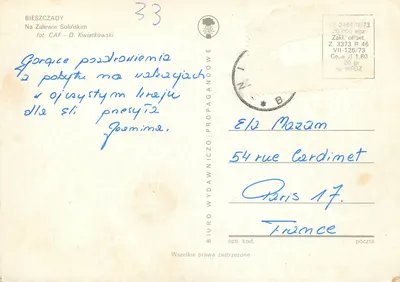 BIESZCZADY
Na Zalewie Solińskim
fot. CAF - D. Kwiatkowski
33
Gorące pozdrowienia
z pobytu na wakacjach
w ojczystym kraju
dla śl. przesyła
BIURO WYDAWNICZO-PROPAGANDOWE
Zakł. offset.
Z. 3313 R 66
VII-126/73
Cena zł 1,80
54 rue Cardinet
Paris 17.
France
opn. kod
poczta
Wszelkie prawa zastrzeżone